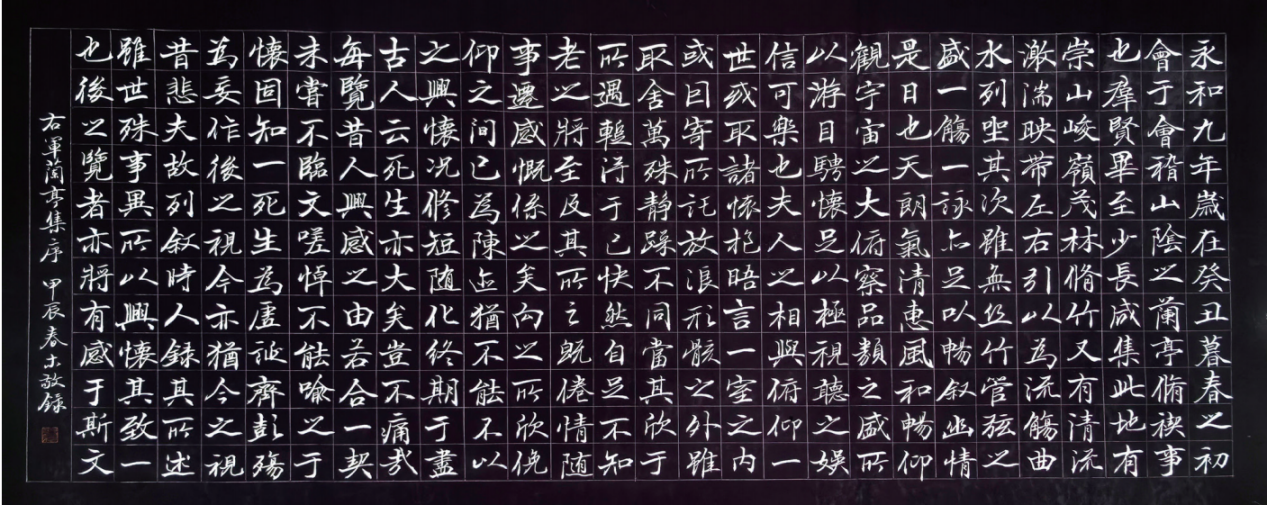 永和九年歲在癸丑暮春之初
會于會稽山陰之蘭亭脩禊事
也羣賢畢至少長咸集此地有
崇山峻嶺茂林脩竹又有清流
激湍映带左右引以為流觴曲
水列坐其次雖無絲竹管弦之
盛一觴一詠亦足以暢叙幽情
是日也天朗氣清惠風和暢仰
觀宇宙之大俯察品類之盛所
以游目騁懷足以極視聽之娛
信可樂也夫人之相與俯仰一
世或取諸懷抱晤言一室之内
或因寄所託放浪形骸之外雖
取舍萬殊靜躁不同當其欣于
所遇輒得于己快然自足不知
老之將至及其所之既倦情随
事遷感慨係之矣向之所欣俛
仰之间已為陳迹猶不能不以
之興懷况修短随化終期于盡
古人云死生亦大矣豈不痛哉
每覽昔人興感之由若合一契
未嘗不臨文嗟悼不能喻之于
懷固知一死生為虛誕齊彭殤
為妄作後之視今亦猶今之視
昔悲夫故列叙時人録其所述
雖世殊事異所以興懷其致一
也後之覽者亦將有感于斯文
右軍蘭亭集序 甲辰春 敬録